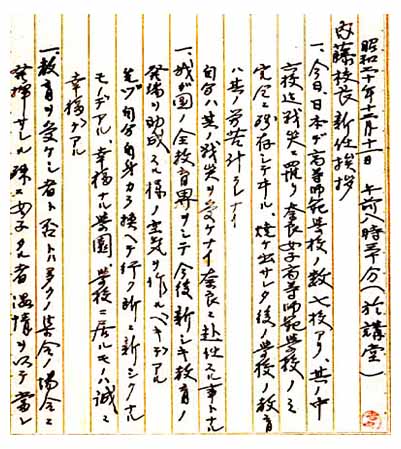 昭和二十年十二月十一日 午前八時三十分(於講堂)
内藤校長新任挨拶
一、今日、日本デ高等師範学校ノ数七校アリ、其ノ中
六校迄戦災ニ罹リ奈良女子高等師範学校ノミ
完全ニ残存シテヰル、焼ケ出サレタ後ノ学校ノ教育
ハ其ノ労苦計リシレナイ
自分ハ其ノ戦災ヲ受ケナイ奈良ニ赴任スル事トナル
一、我ガ国ノ全教育界ヲシテ今後新シキ教育ノ
発揚ヲ助成スル様ノ空気ヲ作ルベキデアル
先ヅ自分自身カラ換ヘテ行ク所ニ新シクナル
モノデアル 幸福ナル学園、学校ニ居ルモノハ誠ニ
幸福デアル
一、教育ヲ受ケシ者ト否トハ多クノ集合ノ場合ニ
発揮サレル 殊ニ女子タル者温情ヲ以テ当レ